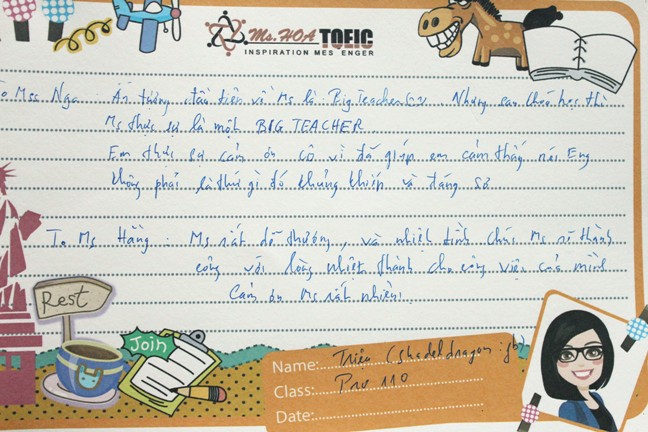 Ms. HOA TOEIC
INSPIRATION MES ENGER
To Mss Nga Ấn tượng đầu tiên về Ms là Big Teacher . Nhưng sau học thì
Ms thực sự là một BIG TEACHER.
Em thực sự cảm ơn cô vì đã giúp em cảm thấy nói Eng
không phải là thứ gì đó khủng khiếp và đáng sợ
To Ms Hằng : Ms rất dễ thương, và nhiệt tình chúc Ms sẽ thành
công với lòng nhiệt thành cho công việc của mình
Cảm ơn Ms rất nhiều!
Rest
Join
Name: Triệu (shadeldragon : fb)
Class: Pre 110
Date: